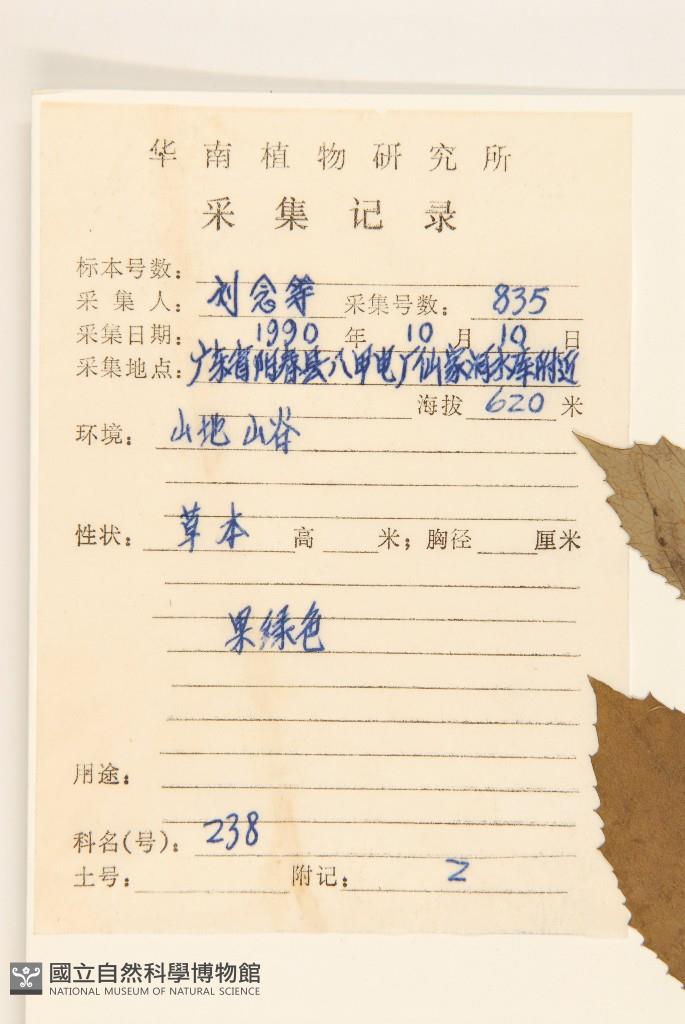 华南植物研究所
采集记录
标本号数：
采集人：刘念等 采集号数：835
采集日期：1990年10月10日
采集地点：广东省阳春县八甲电厂仙家洞水库附近
海拔 620 米
环境：山地 山谷
性状：草本 高 米；胸径 厘米
果绿色
用途：
科名(号)：238
土号： 附记：2
國立自然科學博物館
NATIONAL MUSEUM OF NATURAL SCIENCE